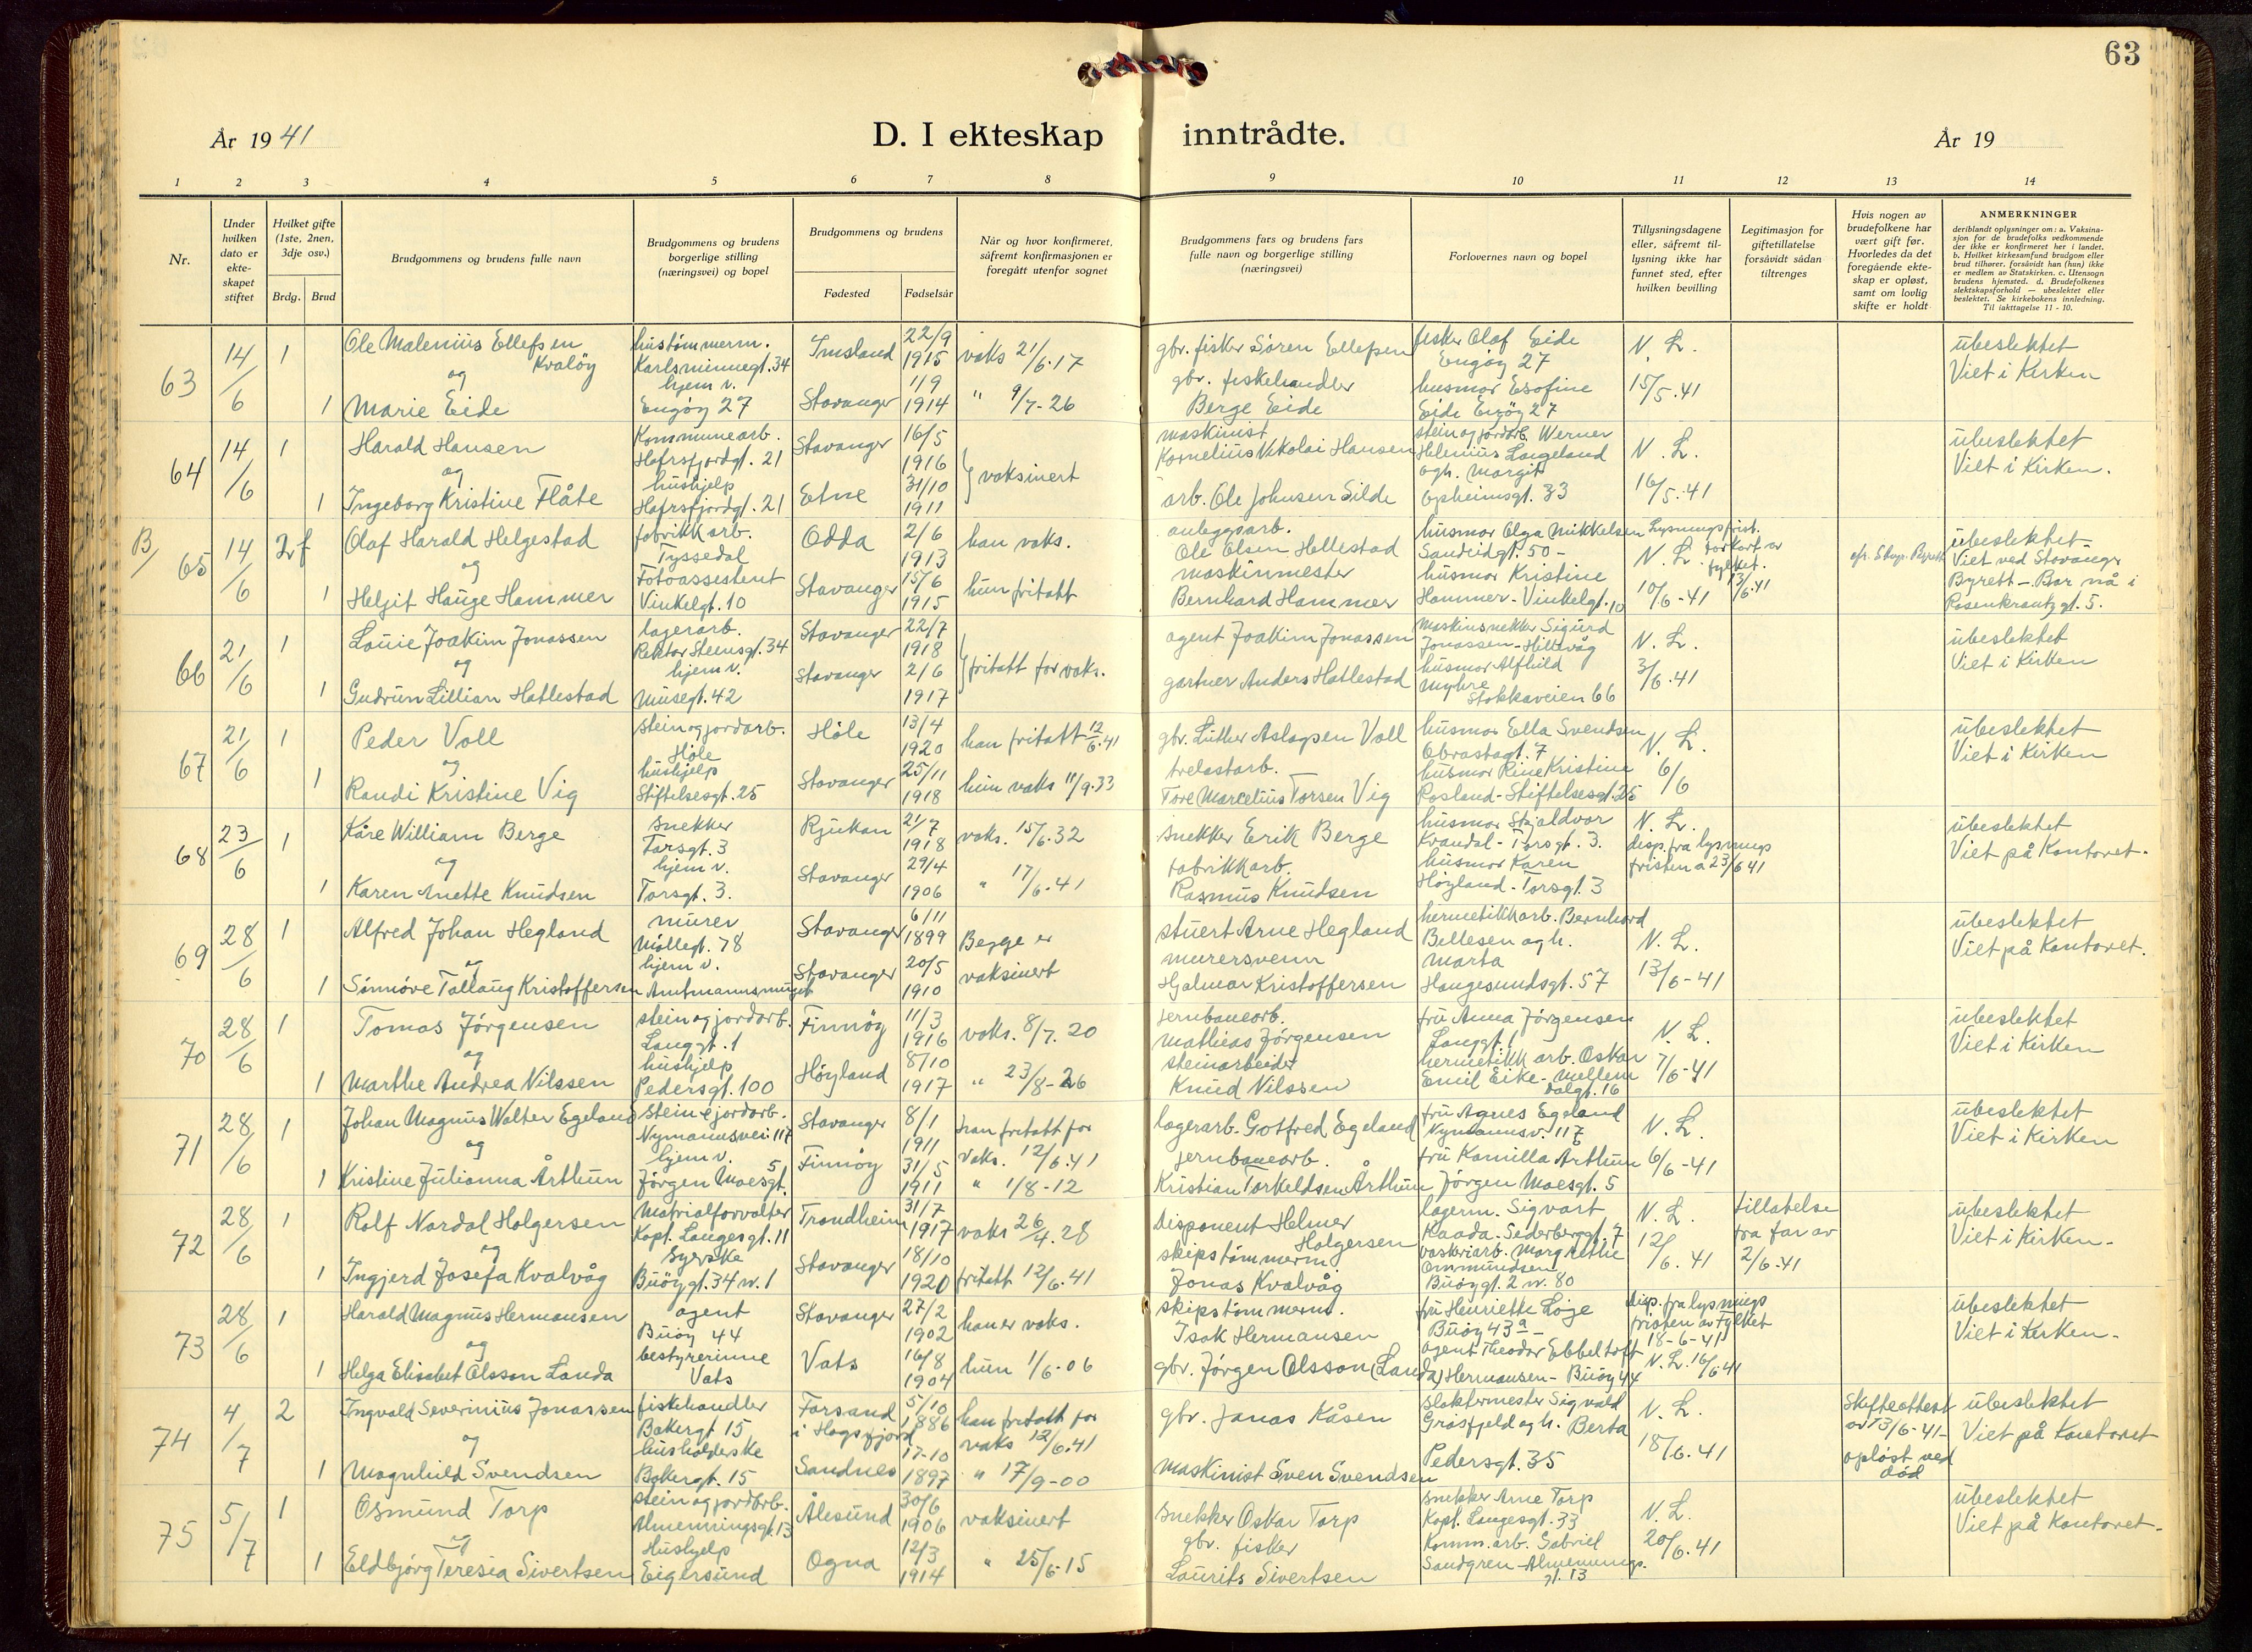 63
År 19 41
D. I ekteskap inntrådte.
År 19
1 2 3 4 5 6 7 8 9 10 11 12 13 14
Nr.
Under hvilken dato er ekte-skapet stiftet
Hvilket gifte (1ste, 2nen, 3dje osv.)
Brdg. Brud
Brudgommens og brudens fulle navn
Brudgommens og brudens borgerlige stilling (næringsvei) og bopel
Brudgommens og brudens
Fødested Fødselsår
Når og hvor konfirmeret, såfremt konfirmasjonen er foregått utenfor sognet
Brudgommens fars og brudens fars fulle navn og borgerlige stilling (næringsvei)
Forlovernes navn og bopel
Tillysningsdagene eller, såfremt til-lysning ikke har funnet sted, efter hvilken bevilling
Legitimasjon for giftetillatelse forsåvidt sådan tiltrenges
Hvis nogen av brudefolkene har vært gift før. Hvorledes da det foregående ekte-skap er opløst, samt om lovlig skifte er holdt
ANMERKNINGER
deriblandt oplysninger om: a. Vaksina-sjon for de brudefolks vedkommende der ikke er konfirmeret her i landet. b. Hvilket kirkesamfund brudgom eller brud tilhører, forsåvidt han (hun) ikke er medlem av Statskirken. c. Utensogn brudens hjemsted. d. Brudefolkenes slektskapsforhold — ubeslektet eller beslektet. Se kirkebokens innledning. Til iakttagelse 11 - 10.
63 14/6 1 Ole Malenius Ellefsen Kvaløy
hustømmerm. Karlsminnegt. 34
Imsland 22/9 1915 vaks 21/6.17
gbr. fisker Sören Ellefsen
fisker Olaf Eide Engöy 27
N. L. 15/5.41
ubeslektet Viet i Kirken
og
1 Marie Eide
hjem v. Engöy 27
Stavanger 1/9 1914 " 9/7-26
gbr. fiskehandler Berge Eide
husmor Esofine Eide Engöy 27
64 14/6 1 Harald Hansen
Kommunearb. Hafrsfjordgt. 21
Stavanger 16/5 1916
vaksinert
maskinist Kornelius Nikolai Hansen
stein og jordarb. Werner Helenius Langeland og h. Margit Opheimsgt. 33
N. L. 16/5.41
ubeslektet Viet i Kirken.
og
1 Ingeborg Kristine Flåte
hushjelp Hafrsfjordgt. 21
Etne 31/10 1911
arb. Ole Johnsen Silde
B/ 65 14/6 2 f Olaf Harald Helgestad
fabrikkarb. Tyssedal
Odda 2/6 1913 han vaks.
anleggsarb. Ole Olsen Hellestad
husmor Olga Mikkelsen Sandeidgt. 50 -
N. L. 10/6-41
Lysningsfrist. forkort av fylket. 13/6.41
ubeslektet Viet ved Stavanger Byrett - Bor nå i Rosenkrantzgt. 5.
og
1 Heljit Hauge Hammer
Fotoassestent Vinkelgt. 10
Stavanger 15/6 1915 hun fritatt
maskinmester Bernhard Hammer
husmor Kristine Hammer - Vinkelgt. 10
66 21/6 1 Louie Joakim Jonassen
lagerarb. Rektor Steensgt. 34
Stavanger 22/7 1918
fritatt for vaks.
agent Joakim Jonassen
Maskinsnekker Sigurd Jonassen - Hillevåg
N. L. 3/6.41
ubeslektet Viet i Kirken
og
1 Gudrun Lillian Hatlestad
hjem v. Musegt. 42
Stavanger 2/6 1917
gartner Anders Hatlestad
husmor Alfhild Myhre Stokkaveien 66
67 21/6 1 Peder Voll
stein og jordarb. Høle
Høle 13/4 1920 han fritatt 12/6.41
gbr. Luther Aslagsen Voll
husmor Ella Svendsen Obrestadgt. 7
N. L. 6/6
ubeslektet Viet i Kirken
og
1 Randi Kristine Vig
hushjelp Stiftelsesgt. 25
Stavanger 25/11 1918 hun vaks 11/9.33
trelastarb. Tore Marcelius Torsen Vig
husmor Rine Kristine Rosland - Stiftelsesgt. 25
68 23/6 1 Kåre William Berge
snekker Torsgt. 3
Rjukan 21/7 1918 vaks. 15/6.32
snekker Erik Berge
husmor Skjaldvor Kvandal - Torsgt. 3.
N. L. disp. fra lysnings fristen a 23/6 41
ubeslektet Viet på Kontoret.
og
1 Karen Anette Knudsen
hjem v. Torsgt. 3.
Stavanger 29/4 1906 " 17/6.41
fabrikkarb. Rasmus Knudsen
husmor Karen Høyland - Torsgt. 3
69 28/6 1 Alfred Johan Hegland
murer Møllegt. 78
Stavanger 6/11 1899 Begge er vaksinert
stuert Arne Hegland
hermetikkarb. Bernhard Bellesen og h. Marta Haugesundsgt. 57
N. L. 13/6-41
ubeslektet Viet på Kontoret.
og
1 Sinnöve Tallaug Kristoffersen
hjem v.
Stavanger 20/5 1910
murersvenn Hjalmar Kristoffersen
70 28/6 1 Tomas Jörgensen
stein og jordarb. Langgt. 1
Finnöy 11/3 1916 vaks. 8/7.20
jernbanearb. Mathias Jörgensen
fru Anna Jörgensen Langgt. 1
N. L. 7/6-41
ubeslektet Viet i Kirken
og
1 Marthe Andrea Nilssen
hushjelp Pedersgt. 100
Höyland 8/10 1917 " 23/8-26
steinarbeider Knud Nilssen
hermetikk arb. Oskar Emil Eike - Mellem dalgt. 16
71 28/6 1 Johan Magnus Walter Egeland
stein & jordarb. Nymannsvei 117
Stavanger 8/1 1911 han fritatt for vaks. 12/6.41
lagerarb. Gotfred Egeland
fru Agnes Egeland Nymannsv. 117
N. L. 6/6-41
ubeslektet Viet i Kirken
og
1 Kristine Julianna Årthun
hjem v. Jörgen Moesgt. 5
Finnöy 31/5 1911 " 1/8-12
jernbanearb. Kristian Torkeldsen Årthun
fru Kamilla Årthun Jörgen Moesgt. 5
72 28/6 1 Rolf Nordal Holgersen
Matrialforvalter Kapt. Langesgt. 11
Trondheim 31/7 1917 vaks 26/4.28
Disponent Helmer Holgersen
lagerm. Sigvart Kaada. Sederberggt. 7
N. L. 12/6.41
tillatelse fra far av 2/6.41
ubeslektet Viet i Kirken -
og
1 Ingjerd Josefa Kvalvåg
syerske Buöygt. 34 n. 1
Stavanger 18/10 1920 fritatt 12/6.41
skipstømmerm Jonas Kvalvåg
vaskeriarb. Margrethe Ommundsen Buöygt. 2 n. 80
73 28/6 1 Harald Magnus Hermansen
agent Buöy 44
Stavanger 27/2 1902 han er vaks.
skipstømmerm. Isak Hermansen
fru Henriette Løje Buöy 43 a -
disp. fra lysnings fristen av Fylket 18-6-41 N. L. 16/6 41
ubeslektet Viet i Kirken -
og
1 Helga Elisabet Olsson Landa
bestyrerinne Vats
Vats 16/8 1904 hun 1/6-06
gbr. Jörgen Olsson (Landa)
agent Theodor Ebbeltoft Hermansen - Buöy 44
74 4/7 2 Ingvald Severinius Jonassen
fiskehandler Bakergt 15
Forsand i Høgsfjord 5/10 1886 han fritatt for vaks 12/6.41
gbr. Jonas Kåsen
slaktermester Sigvald Gråsfjeld og h. Berta Pedersgt. 35
N. L. 18/6.41
Skifteattest av 13/6-41 - opløst ved död
ubeslektet Viet på Kontoret
og
1 Magnhild Svendsen
husholderske Bakergt. 15
Sandnes 17-10 1897 " 17/9-00
maskinist Sven Svendsen
75 5/7 1 Osmund Torp
stein og jordarb. Almenningsgt. 13
Ålesund 30/6 1906 vaksinert
snekker Oskar Torp
snekker Arne Torp Kapt. Langesgt. 33
N. L. 20/6.41
ubeslektet Viet på Kontoret -
og
1 Eldbjörg Teresia Sivertsen
Hushjelp Eigersund
Ogna 12/3 1914 " 25/6-15
gbr. fisker Laurits Sivertsen
Komm. arb. Gabriel Sandgren - Almennings. gt. 13